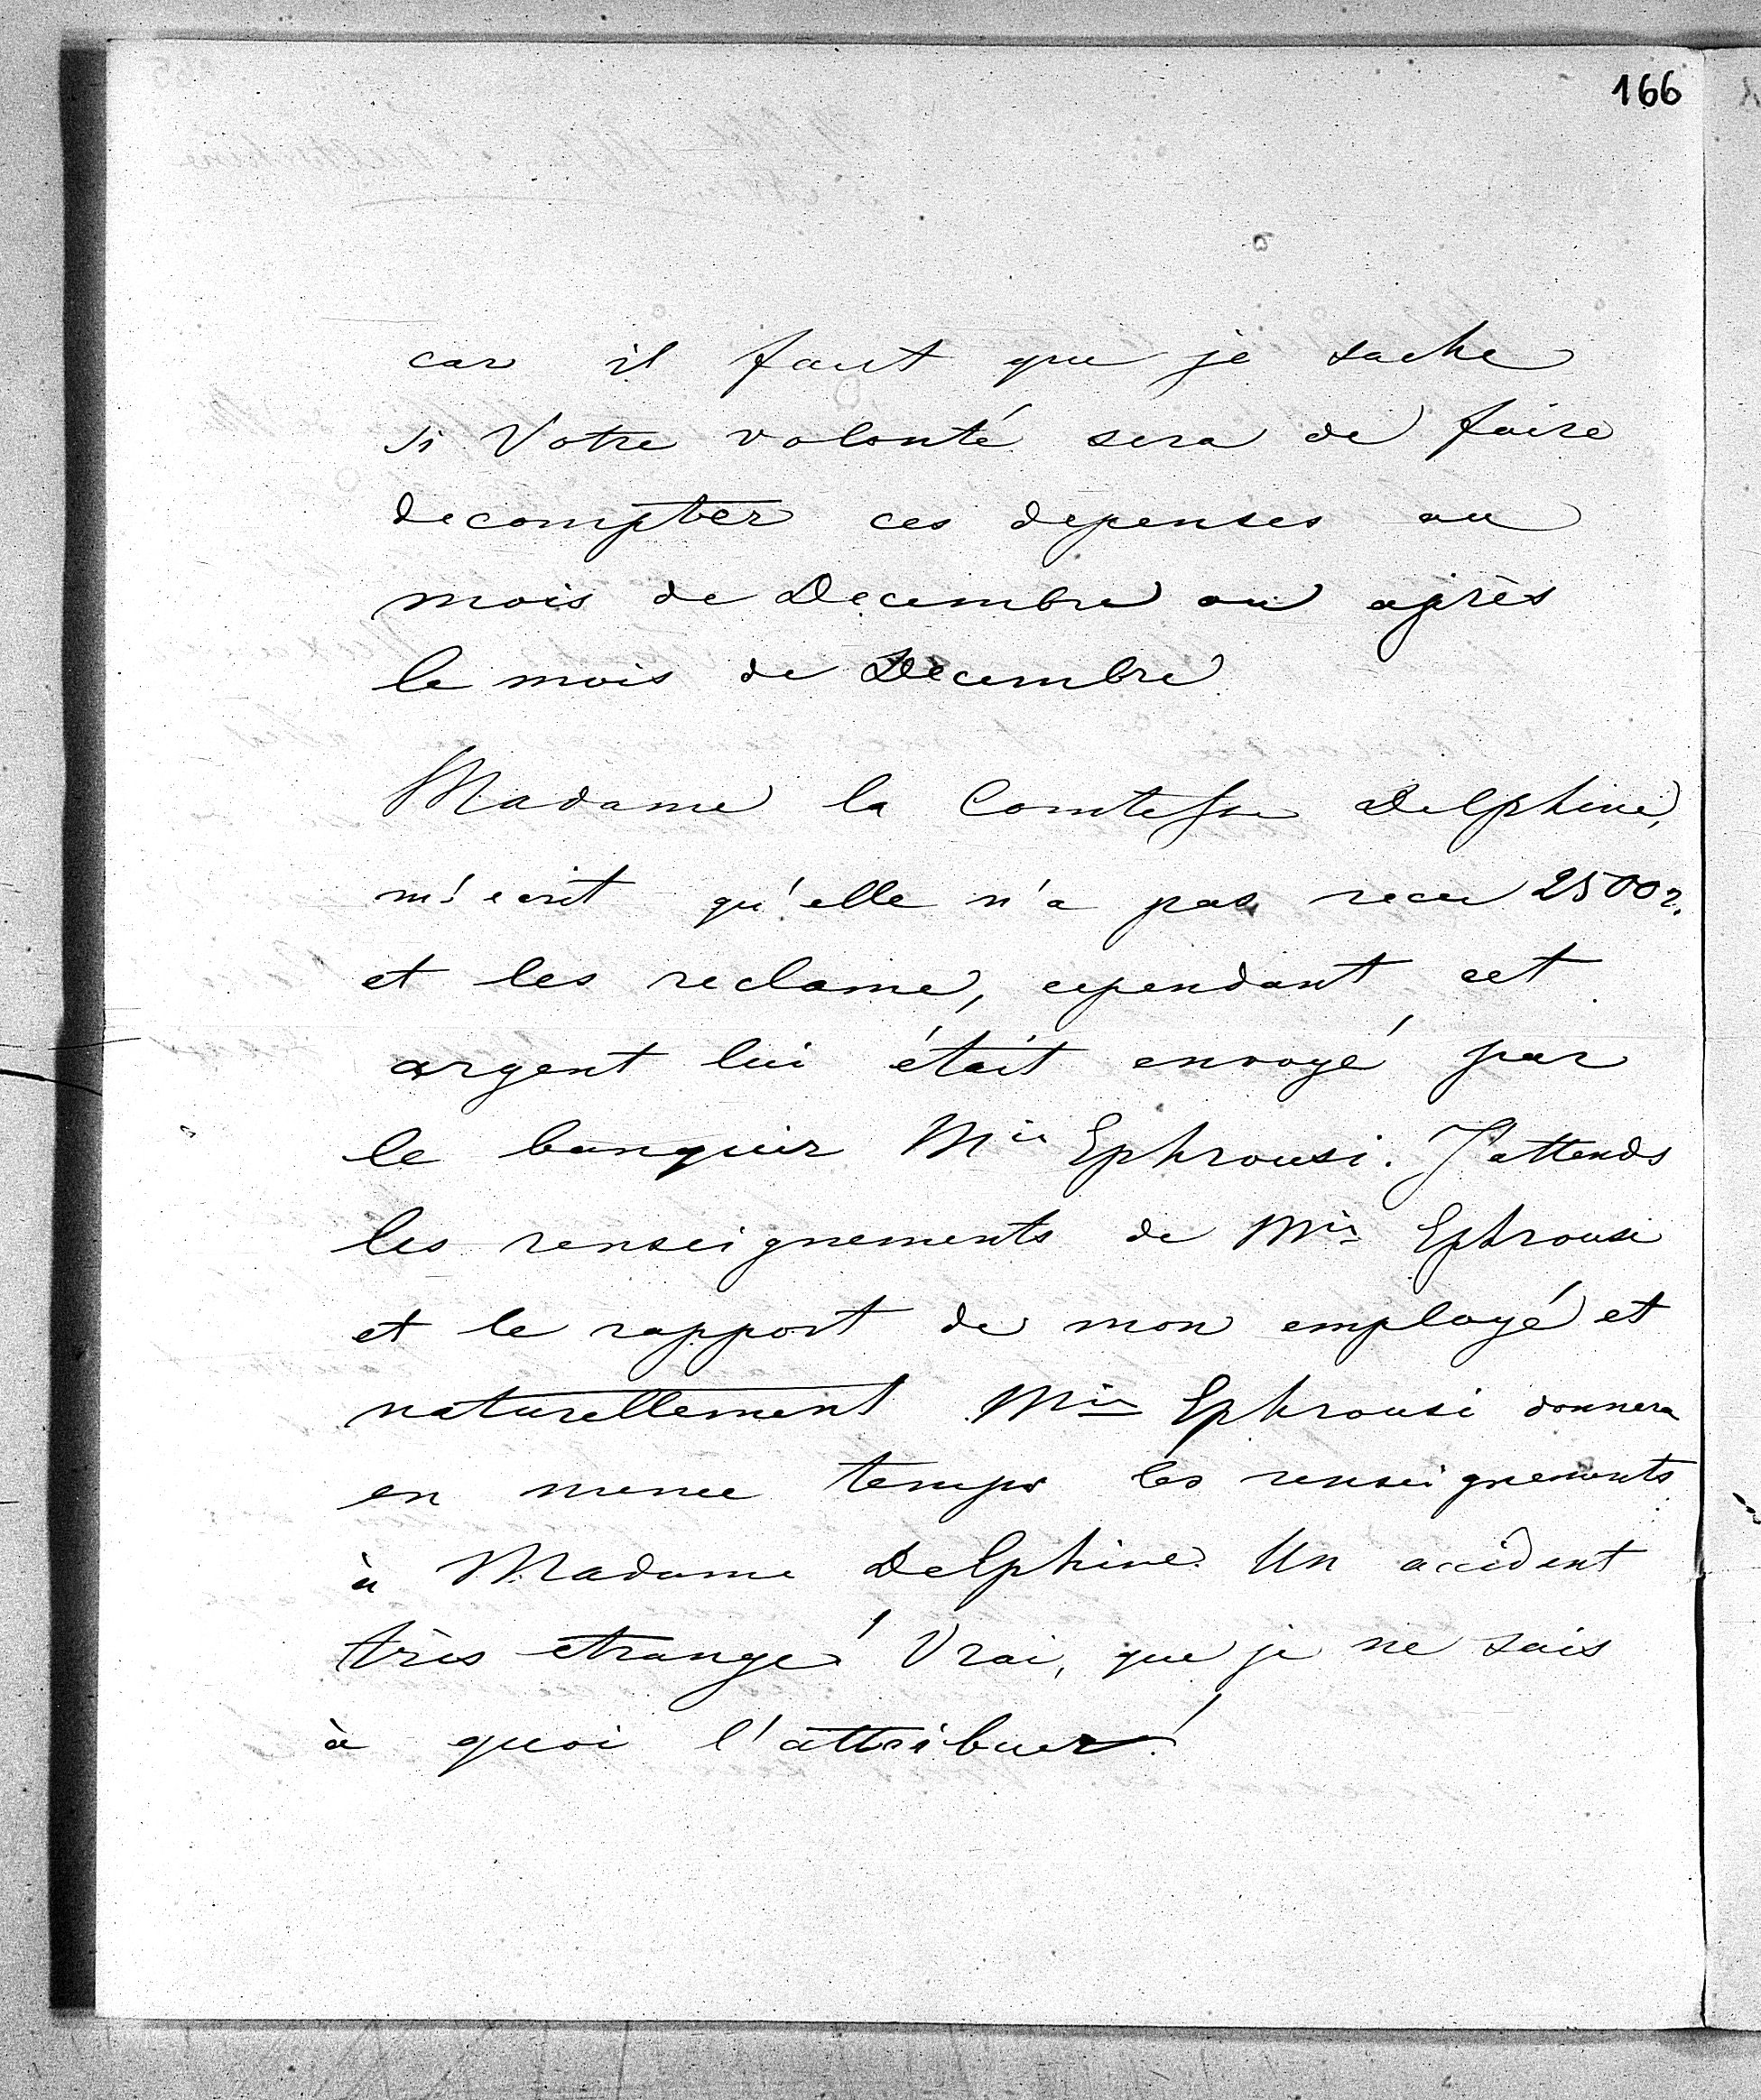 166
car il faut que je sache
si Votre volonté sera de faire
decompter ces depenses au
mois de Decembre ou après
le mois de Decembre
Madame la Comtesse Delphine,
m'ecrit qu'elle n'a pas recu 2500 r.
et les reclame, cependant cet
argent lui était envoyé par
le banquier Mr Ephrousi. J'attends
les renseignements de Mr Ephrousi
et le rapport de mon employé et
naturellement Mr Ephrousi donnera
en meme temps les renseignements
à Madame Delphine. Un accident
très etrange! Vrai, que je ne sais
à quoi l'attribuer!